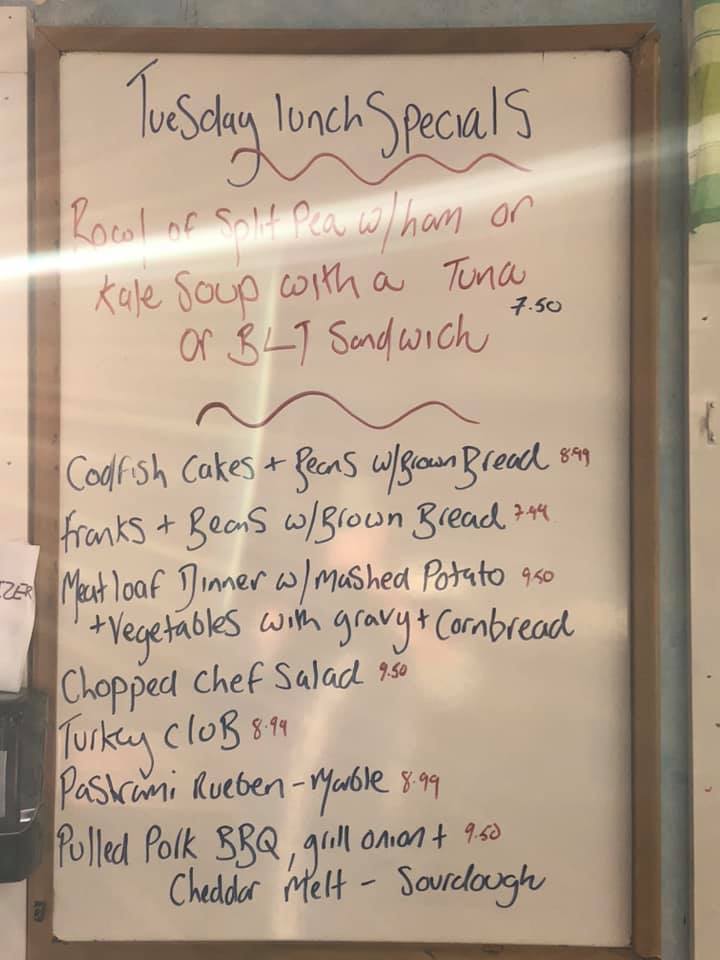 Tuesday lunch Specials
Bowl of Split Pea w/ham or
Kale Soup with a Tuna
7.50
or BLT Sandwich
Codfish Cakes + Beans w/Brown Bread 8.99
franks + Beans w/Brown Bread 7.99
Meatloaf Dinner w/mashed Potato 9.50
+Vegetables with gravy + Cornbread
Chopped chef Salad 9.50
Turkey cluB 8.99
Pastrami Rueben - Marble 8.99
Pulled Pork BBQ, grill onion + 9.50
Cheddar Melt - Sourdough
ZER